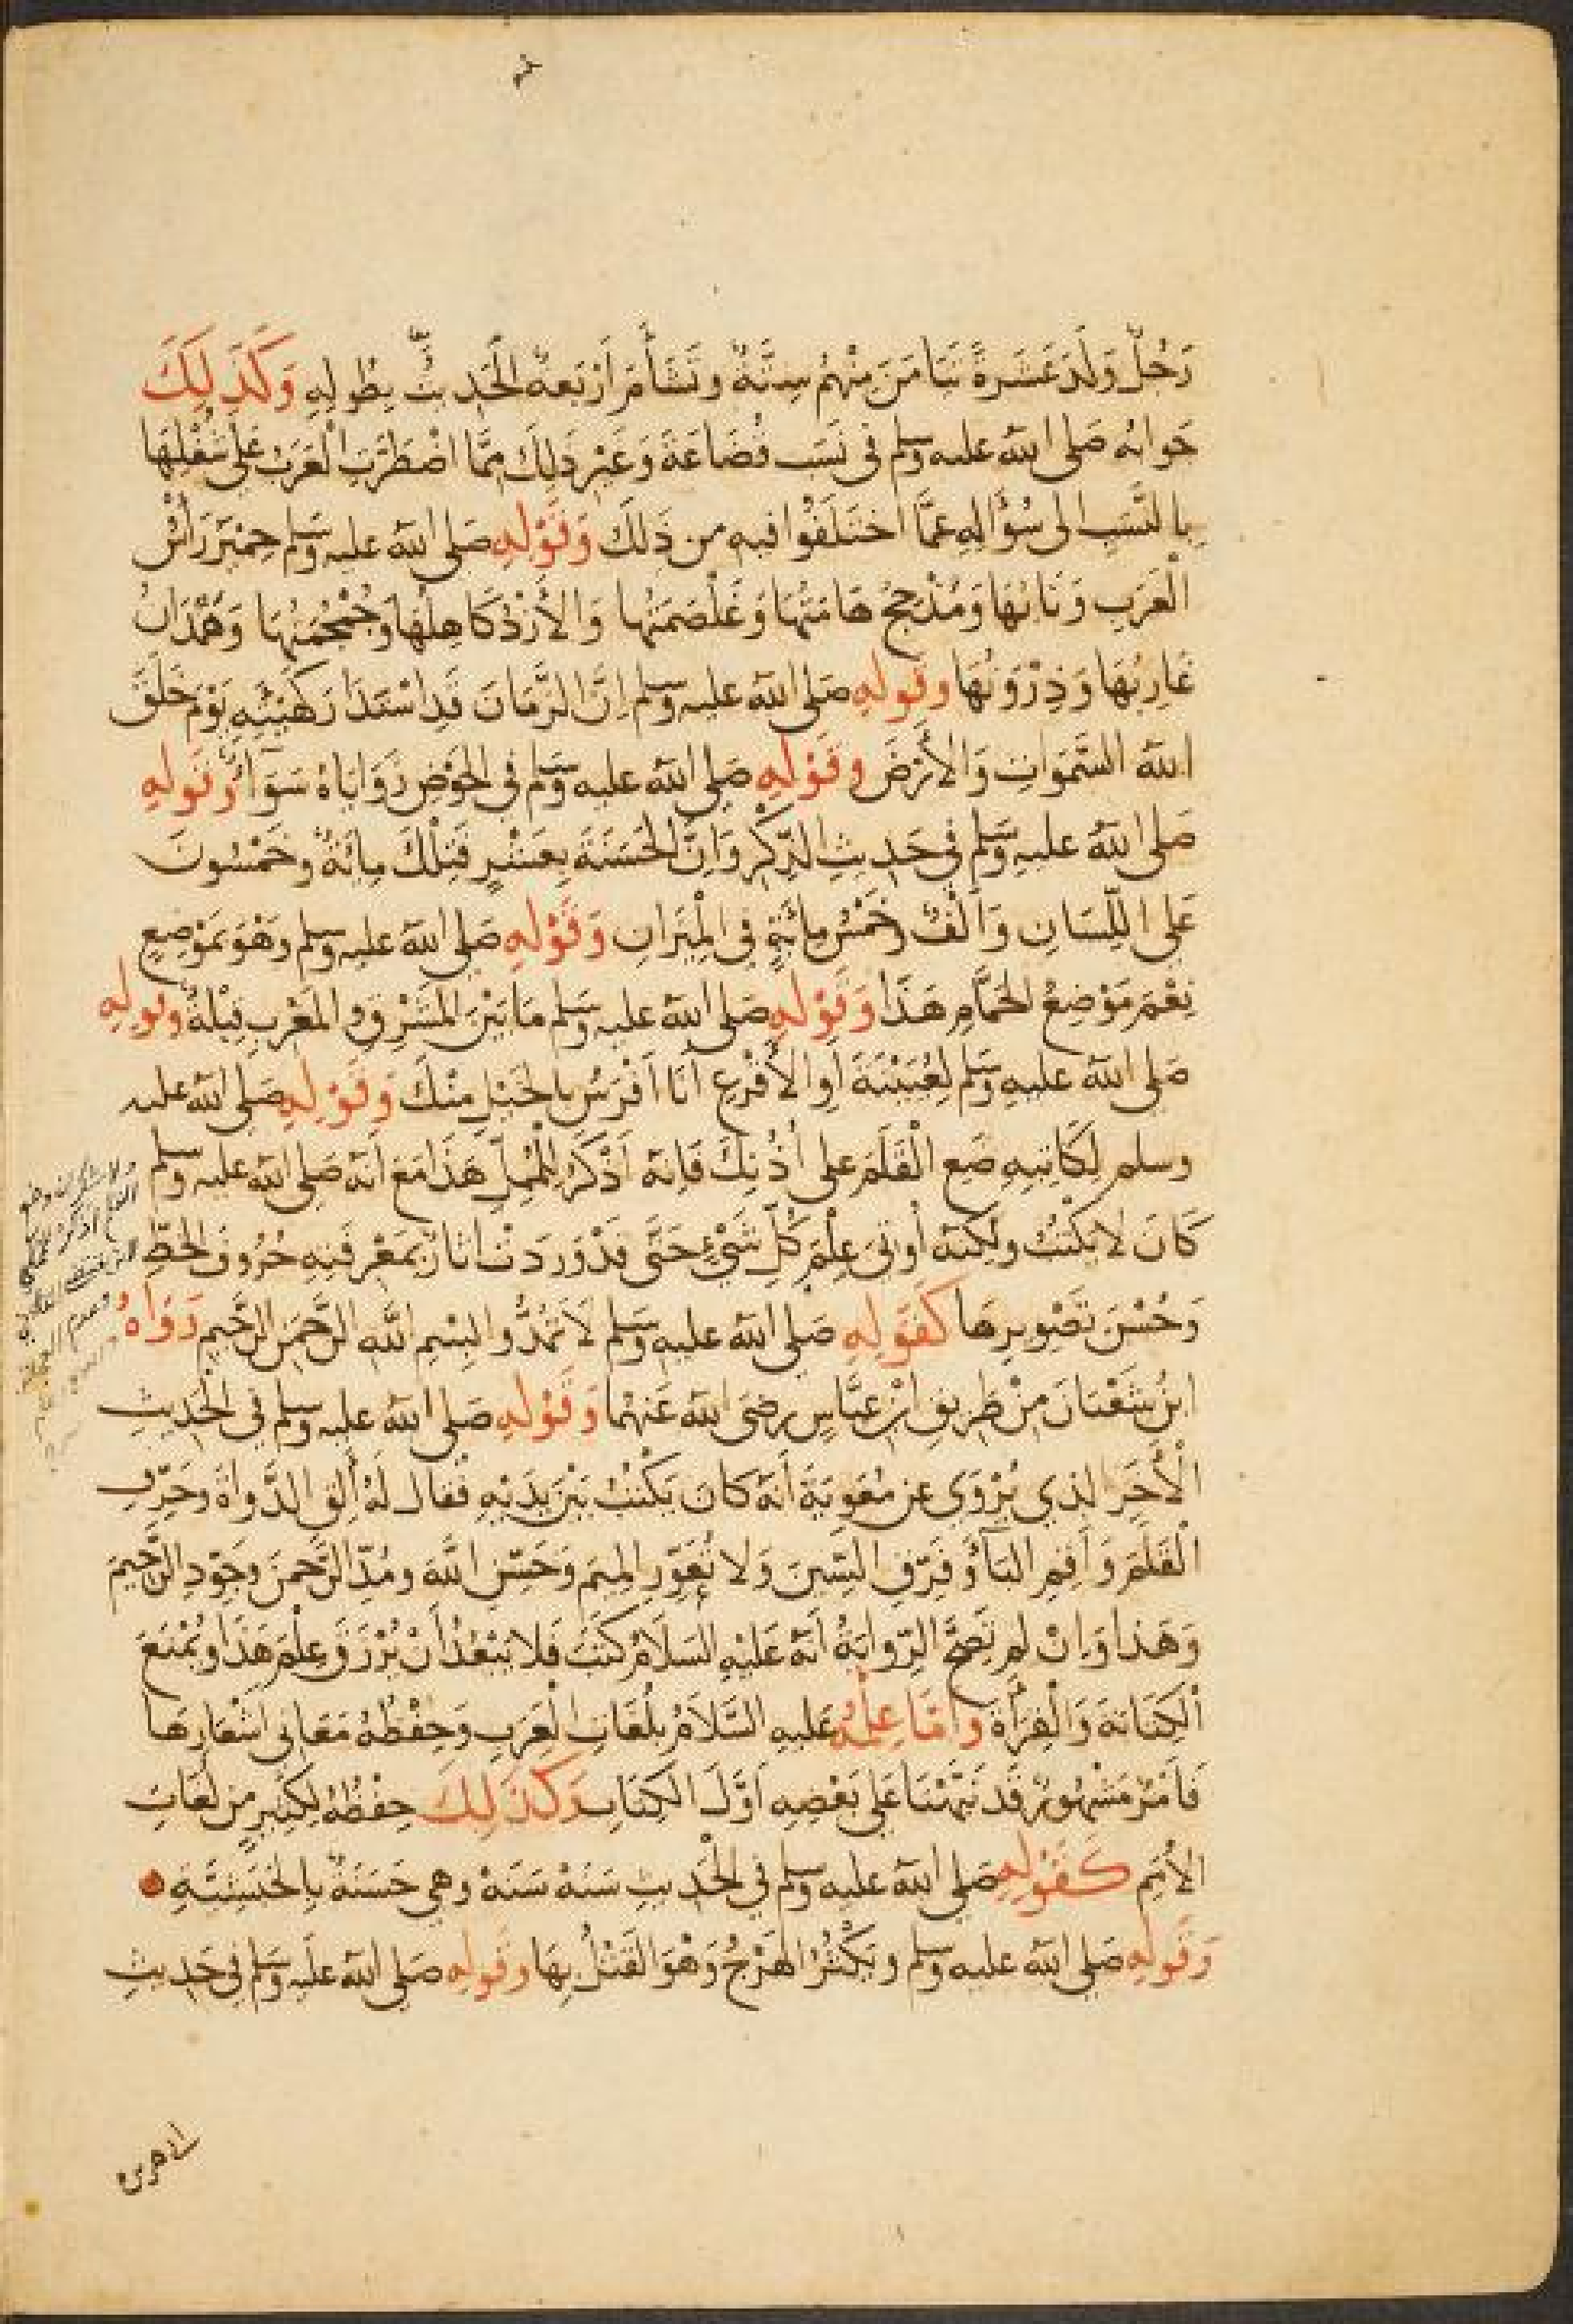 رَجُلٌ وَلَدَ عَشَرَةً تَيَامَنَ مِنْهُمْ سِتَّةٌ وتَشَأَّمَ أَرْبَعَةٌ الحَدِيثُ بِطُولِهِ وَكَذَلِكَ
جَوابُه صَلى الله عليه وسلم في نَسَبِ قُضَاعَةَ وَغَيْرِ ذَلِكَ مِمَّا اضْطَرَّتِ الْعَرَبُ عَلَى شُغْلِهَا
بِالنَّسَبِ الى سُؤَالِهِ عَمَّا اخْتَلَفُوا فيهِ من ذَلِكَ وَقَوْلِهِ صَلى الله عليه وَسَلم حِمْيَرُ رَأْسُ
الْعَرَبِ وَنَابُهَا وَمَذْحِجُ هَامَتُهَا وَغَلْصَمَتُها وَالأَزْدُ كَاهِلُهَا وَجُمْجُمَتُهَا وَهَمْدَانُ
غَارِبُهَا وَذِرْوَتُهَا وقَولِهِ صَلى الله عليه وَسلم اِنَّ الزَّمَانَ قَدِ اسْتَدَارَ كَهَيْئَتِهِ يَوْمَ خَلَقَ
الله السَّمَوَاتِ وَالأَرْضَ وقَوْلِهِ صَلى الله عليه وَسَلم في الحَوْضِ زَوَايَاهُ سَوَاءٌ وَقَولِهِ
صَلى اللهُ عليه وَسَلم في حَدِيثِ الذِّكْرِ وَاِنَّ الْحَسَنَةَ بِعَشْرٍ فَتِلْكَ مِائةٌ وخَمْسُونَ
عَلى اللِّسَانِ وَأَلْفٌ وخَمْسُ مِائَةٍ في الْمِيزَانِ وَقَوْلِهِ صَلى الله عليه وسلم وَهْوَ بمَوْضِعٍ
نِعْمَ مَوْضِعُ الحَمَّامِ هَذَا وَقَوْلِهِ صَلى الله عليه وَسَلم مَا بَيْنَ المَشْرِقِ والمَغْرِبِ قِبْلَةٌ وقولِهِ
صَلى الله عليهِ وَسَلم لِعُيَيْنَةَ أوِ الأَقْرَعِ أَنَا أَفْرَسُ بِالخَيْلِ مِنْكَ وَقَوْلِهِ صَلى الله عليه
وسلم لِكَاتِبِهِ ضَعِ الْقَلَمَ عَلى أُذُنِكَ فَاِنَّه أَذْكَرُ لِلْمُمِلِّ هَذَا مَعَ أَنَّه صَلى الله عليه وسلم
كَانَ لا يَكْتُبُ ولَكِنَّه أُوتيَ عِلْمَ كُلِّ شَيْءٍ حَتَّى قَدْ وَرَدَتْ اثارٌ بمَعْرِفَتِهِ حُرُوفَ الخَطِّ
وَحُسْنَ تَصْوِيرِهَا كَقَولِهِ صَلى الله عليه وسلم لاَ تَمُدُّوا بِسْمِ اللهِ الرَّحْمَنِ الرَّحِيمِ رَوَاهُ
ابْنُ شَعْبَانَ مِنْ طَرِيقِ ابْنِ عَبَّاسٍ رضي الله عَنهُما وَقَوْلِهِ صَلى الله عليه وسلم في الْحَدِيثِ
الأَخَرِ الذي يُرْوَى عن مُعَوِيَةَ أَنَّه كان يَكْتُبُ بَيْنَ يَدَيْهِ فقال لَهُ أَلِقِ الدَّوَاةَ وحَرِّفِ
الْقَلَمَ وَأَقِمِ البَاءَ وَفَرِّقِ السِّينَ وَلا تُعَوِّرِ المِيمَ وَحَسِّنِ الله ومُدَّ الرَّحْمنَ وجَوِّدِ الرَّحِيمَ
وَهَذا وَاِنْ لم تَصِحَّ الرِّوايَةُ أَنَّه عَلَيْهِ السَّلاَمُ كَتَبَ فَلا يَبْعُدُ أَنْ يُرْزَقَ عِلْمَ هَذَا ويُمْنَعَ
الْكِتَابَةَ وَالْقِرَأَةَ وأَمَّا عِلْمُهُ عليه السَّلاَمُ بِلُغَاتِ الْعَرَبِ وَحِفْظُهُ مَعَانِي اشْعَارِهَا
فَأَمْرٌ مَشْهُورٌ قَد نَبَّهْنَا عَلى بَعْضِهِ أَوَّلَ الكِتَابِ وَكَذَلِكَ حِفْظُهُ لِكَثِيرٍ من لُغَاتِ
الأُمَمِ كَقَوْلِهِ صَلى الله عليه وسلم في الحَدِيثِ سَنَهْ سَنَهْ وهي حَسَنَةٌ بِالحَبَشِيَّةِ
وَقَولِهِ صَلى الله عليه وسلم ويَكْثُرُ الهَرْجُ وَهْوَ القَتْلُ بِهَا وقَولِهِ صَلى الله عَليه وَسَلم في حَدِيثِ